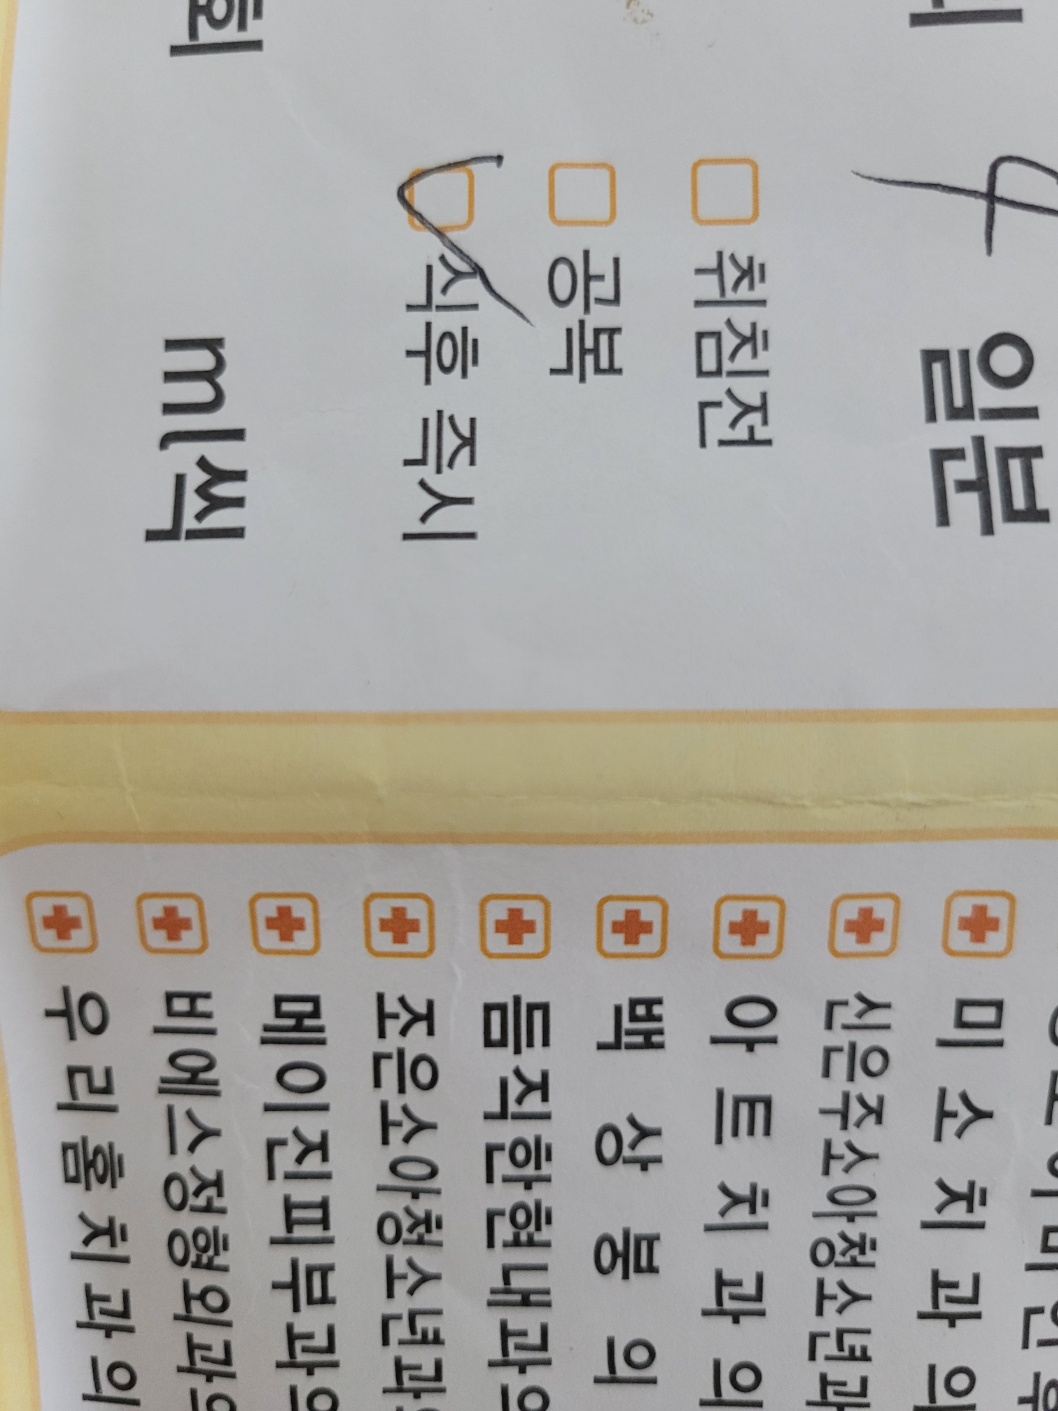 4 일분
취침전
공복
식후 즉시
회 ml씩
미 소 치 과 의
신은주소아청소년과
아 트 치 과 의
백 상 봉 의
듬직한현내과의
조은소아청소년과
메이진피부과의
비에스정형외과의
우 리 홈 치 과 의